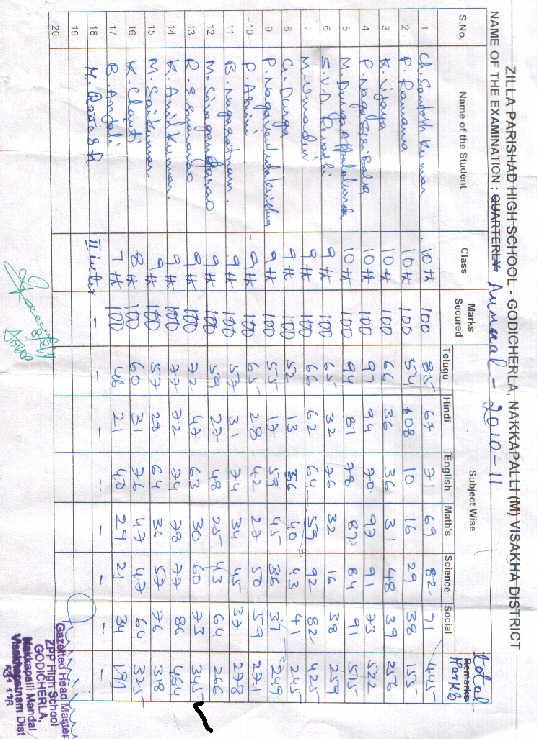 ZILLA PARISHAD HIGH SCHOOL - GODICHERLA, NAKKAPALLI (M) VISAKHA DISTRICT
NAME OF THE EXAMINATION : QUARTERLY Annual - 2010-11
S.No. Name of the Student Class Marks Secured Subject Wise Total Marks Remarks
Telugu Hindi English Maths Science Social
1 Ch. Santosh Kumar 10th 100 85 67 71 69 82 71 445
2 P. Ramana 10th 100 54 08 10 16 29 38 155
3 K. Vijaya 10th 100 66 36 36 31 48 39 256
4 P. Naga Sai Raju 10th 100 97 94 70 97 91 73 522
5 M. Durga 10th 100 94 81 78 87 84 91 515
6 S.V.D. 9th 100 65 32 76 32 16 38 259
7 M. 9th 100 66 62 64 59 92 82 425
8 Ch. Durga 9th 100 52 13 56 40 43 41 245
9 P. 9th 100 55 17 59 45 36 37 249
10 P. 9th 100 65 28 42 27 50 59 271
11 B. 9th 100 57 31 74 34 45 37 278
12 M. 9th 100 59 27 48 25 43 64 266
13 R. 9th 100 72 47 63 30 60 73 345
14 K. Anil Kumar 9th 100 77 72 74 78 77 86 464
15 M. Sai Kumar 9th 100 57 29 64 36 57 76
16 K. 8th 100 60 31 76 47 47 64 325
17 B. Anjali 7th 100 48 21 40 29 21 34 191
18 M. II inter - - - - - - - -
19
20
Gazetted Head Master
ZPP High School
GODICHERLA,
Nakkapalli Mandal
Visakhapatnam Dist